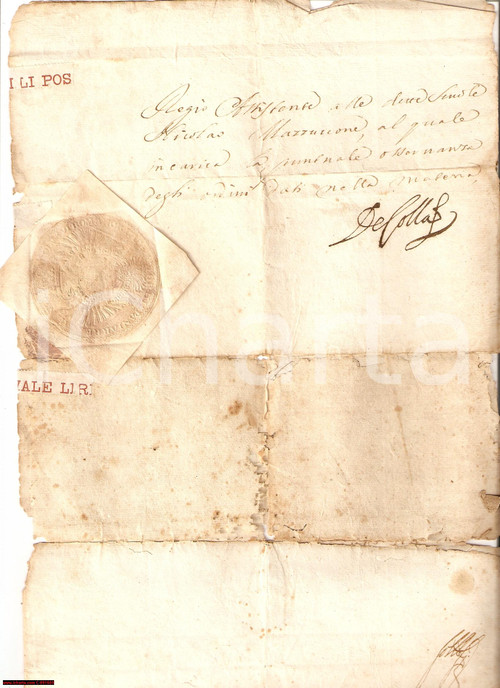 I LI POS
Regio Assistente alle dette Scuole
Nicolao Mazzuccone, al quale
incarica la puntuale osservanza
degli ordini dati nella materia,
De Colla
iCharta
VALE LI RI